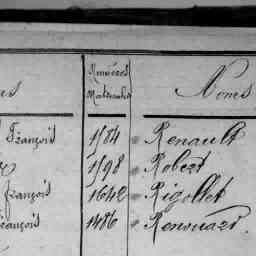 Numéros
Matricules
Noms
François 1584 Renault
1598 Robert
François 1642 Rigollet
François 1486 Renouart